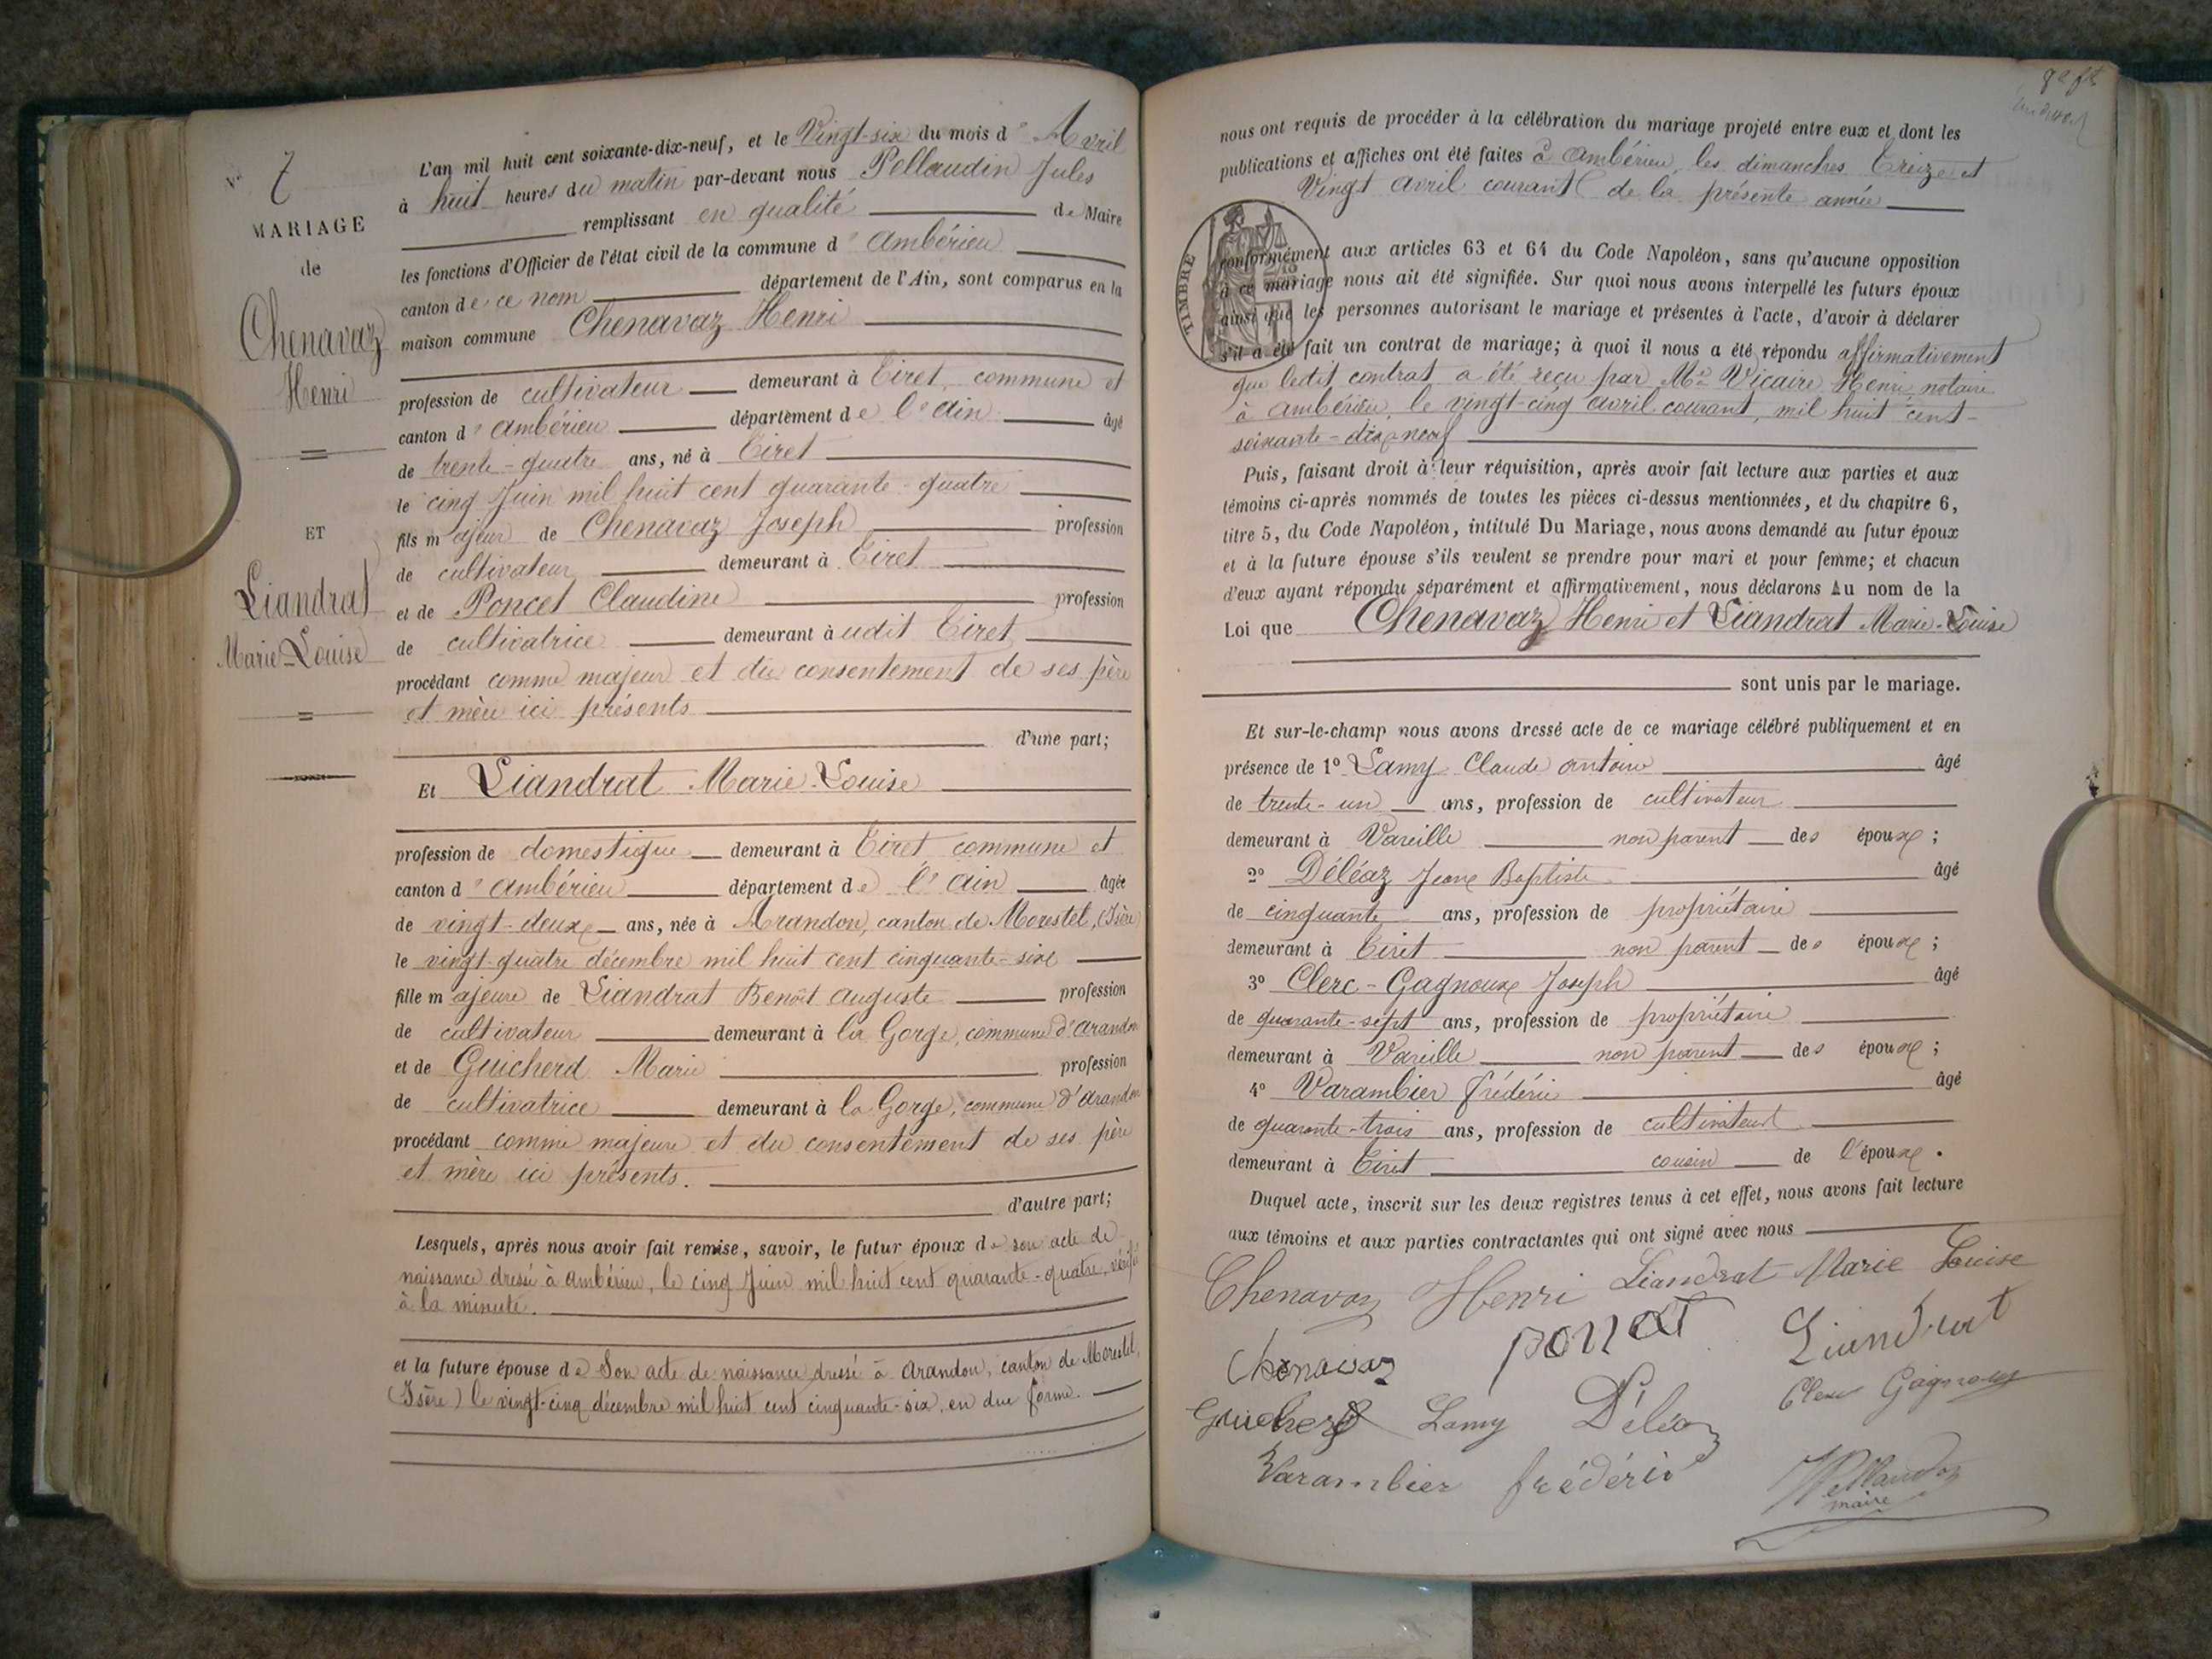 7
MARIAGE
de
Chenavaz
Henri
ET
Liandrat
Marie-Louise
L'an mil huit cent soixante-dix-neuf, et le Vingt-six du mois d' Avril
à huit heures du matin par-devant nous Pellaudin Jules
remplissant en qualité de Maire
les fonctions d'Officier de l'état civil de la commune d' Ambérieu
canton de ce nom département de l'Ain, sont comparus en la
maison commune Chenavaz Henri
profession de cultivateur demeurant à Tiret, commune et
canton d' Ambérieu département de l'Ain âgé
de trente-quatre ans, né à Tiret
le cinq Juin mil huit cent quarante-quatre
fils majeur de Chenavaz Joseph profession
de cultivateur demeurant à Tiret
et de Poncet Claudine profession
de cultivatrice demeurant à udit Tiret
procédant comme majeur et du consentement de ses père
et mère ici présents
d'une part;
Et Liandrat Marie-Louise
profession de domestique demeurant à Tiret commune et
canton d' Ambérieu département de l'Ain âgée
de vingt-deux ans, née à Arandon, canton de Morestel, (Isère)
le vingt-quatre décembre mil huit cent cinquante-six
fille majeure de Liandrat Benoît Auguste profession
de cultivateur demeurant à la Gorge, commune d'Arandon
et de Guicherd Marie profession
de cultivatrice demeurant à la Gorge, commune d'Arandon
procédant comme majeure et du consentement de ses père
et mère ici présents.
d'autre part;
Lesquels, après nous avoir fait remise, savoir, le futur époux de son acte de
naissance dressé à Ambérieu, le cinq Juin mil huit cent quarante-quatre, vérifié
à la minute.
et la future épouse de Son acte de naissance dressé à Arandon, canton de Morestel,
(Isère) le vingt-cinq décembre mil huit cent cinquante-six, en due forme.
nous ont requis de procéder à la célébration du mariage projeté entre eux et dont les
publications et affiches ont été faites à Ambérieu, les dimanches Treize et
Vingt avril courant de la présente année
TIMBRE
conformément aux articles 63 et 64 du Code Napoléon, sans qu'aucune opposition
à ce mariage nous ait été signifiée. Sur quoi nous avons interpellé les futurs époux
ainsi que les personnes autorisant le mariage et présentes à l'acte, d'avoir à déclarer
s'il a été fait un contrat de mariage; à quoi il nous a été répondu affirmativement
que ledit contrat a été reçu par Me Vicaire Henri, notaire
à Ambérieu, le vingt-cinq avril courant, mil huit cent-
soixante-dix-neuf
Puis, faisant droit à leur réquisition, après avoir fait lecture aux parties et aux
témoins ci-après nommés de toutes les pièces ci-dessus mentionnées, et du chapitre 6,
titre 5, du Code Napoléon, intitulé Du Mariage, nous avons demandé au futur époux
et à la future épouse s'ils veulent se prendre pour mari et pour femme; et chacun
d'eux ayant répondu séparément et affirmativement, nous déclarons Au nom de la
Loi que Chenavaz Henri et Liandrat Marie-Louise
sont unis par le mariage.
Et sur-le-champ nous avons dressé acte de ce mariage célébré publiquement et en
présence de 1º Lamy Claude Antoine âgé
de trente-un ans, profession de cultivateur
demeurant à Vareille non parent des époux;
2º Déléaz Jean Baptiste âgé
de cinquante ans, profession de propriétaire
demeurant à Tiret non parent des époux;
3º Clerc-Gagnoux Joseph âgé
de quarante-sept ans, profession de propriétaire
demeurant à Vareille non parent des époux;
4º Varambier frédéric âgé
de quarante-trois ans, profession de cultivateur
demeurant à Tiret cousin de l'époux.
Duquel acte, inscrit sur les deux registres tenus à cet effet, nous avons fait lecture
aux témoins et aux parties contractantes qui ont signé avec nous
Chenavaz Henri Liandrat Marie Louise
Chenavaz poncet Liandrat
Guicherd Lamy Déléaz Clerc Gagnoux
Varambier frédéric
maire